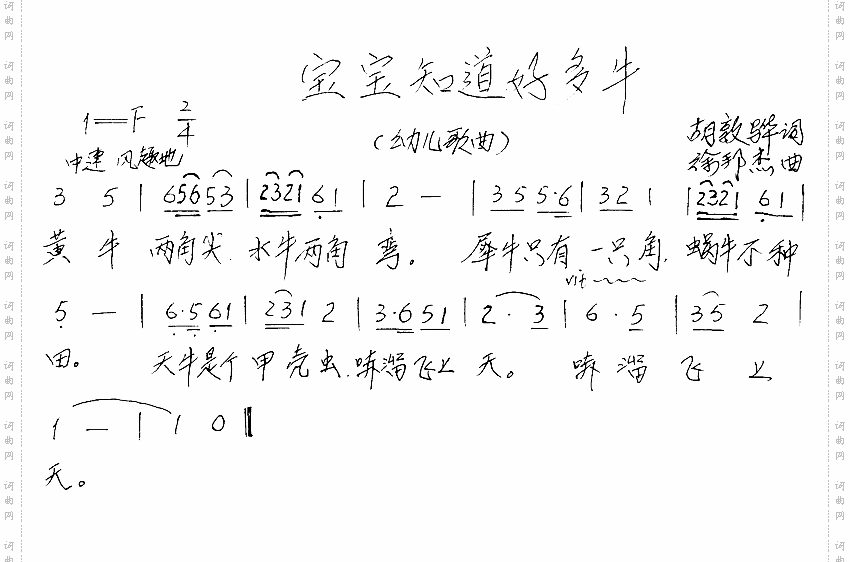 宝宝知道好多牛
1=F 2/4
(幼儿歌曲)
胡敦骅词
中速 风趣地
徐邦杰曲
3 5 | 6565 3 | 2321 61 | 2 — | 35 5·6 | 32 1 | 2321 61 |
黄牛 两角尖.水牛两角 弯。 犀牛只有 一只角.蜗牛不种
rit
5 — | 6·5 61 | 231 2 | 3·6 51 | 2· 3 | 6· 5 | 35 2 |
田。 天牛是个 甲壳虫.哧溜飞上 天。 哧溜 飞 上
1 — | 1 0 ‖
天。
词曲网